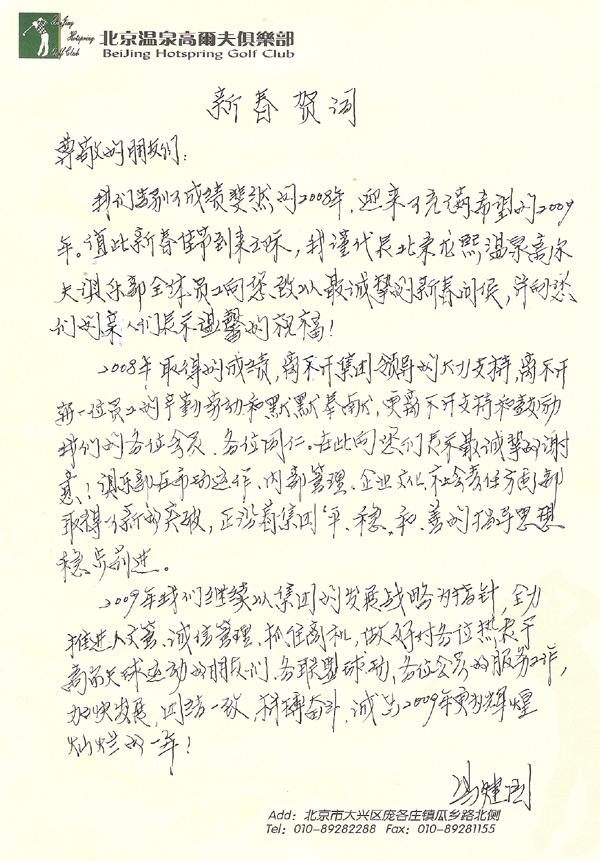 BeiJing
Hotspring
Golf Club
北京温泉高爾夫俱樂部
BeiJing Hotspring Golf Club
新春贺词
尊敬的朋友们：
我们告别了成绩斐然的2008年，迎来了充满希望的2009
年。值此新春佳节到来之际，我谨代表北京龙熙温泉高尔
夫俱乐部全体员工向您致以最诚挚的新春问侯，并向您
们的亲人们表示温馨的祝福！
2008年取得的成绩，离不开集团领导的大力支持，离不开
每一位员工的辛勤劳动和默默奉献，更离不开支持和鼓励
我们的各位会员、各位同仁。在此向您们表示最诚挚的谢
意！俱乐部在市场运作、内部管理、企业文化、社会责任方面都
取得了新的突破，正沿着集团“平、稳、和、善”的指导思想
稳步前进。
2009年我们继续以集团的发展战略为指针，全力
推进人文管、诚信管理、抓住商机，做好对各位热衷于
高尔夫球运动的朋友们、各联盟球场、各位会员的服务工作，
加快发展，团结一致，拼搏奋斗，诚与2009年更为辉煌
灿烂的一年！
冯建国
Add: 北京市大兴区庞各庄镇瓜乡路北侧
Tel: 010-89282288 Fax: 010-89281155